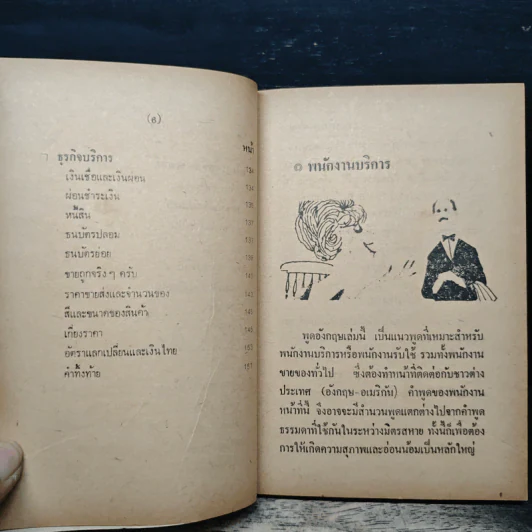 (๕)
หน้า
ธุรกิจบริการ
เงินเชื่อและเงินผ่อน
ผ่อนชำระเงิน
หนี้สิน
ธนบัตรปลอม
ธนบัตรย่อย
ขายถูกจริง ๆ ครับ
ราคาขายส่งและจำนวนของ
สีและขนาดของสินค้า
เกี่ยงราคา
อัตราแลกเปลี่ยนและเงินไทย
คำทิ้งท้าย
๑ พนักงานบริการ
พูดอังกฤษเล่มนี้ เป็นแนวพูดที่เหมาะสำหรับ
พนักงานบริการหรือพนักงานรับใช้ รวมทั้งพนักงาน
ขายของทั่วไป ซึ่งต้องทำหน้าที่ติดต่อกับชาวต่าง
ประเทศ (อังกฤษ-อเมริกัน) คำพูดของพนักงาน
หน้าที่นี้ จึงอาจจะมีสำนวนพูดแตกต่างไปจากคำพูด
ธรรมดาที่ใช้กันในระหว่างมิตรสหาย ทั้งนี้ก็เพื่อต้อง
การให้เกิดความสุภาพและอ่อนน้อมเป็นหลักใหญ่